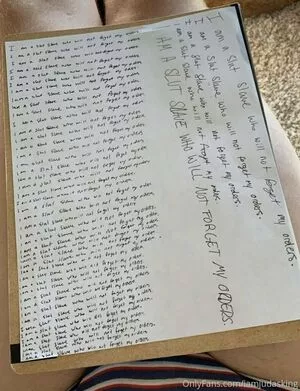 I am a slut slave who will not forget my orders.
I am a slut slave who will not forget my orders.
I am a slut slave who will not forget my orders.
I am a slut slave who will not forget my orders.
I am a slut slave who will not forget my orders.
I am a slut slave who will not forget my orders.
I am a slut slave who will not forget my orders.
I am a slut slave who will not forget my orders.
I am a slut slave who will not forget my orders.
I am a slut slave who will not forget my orders.
I am a slut slave who will not forget my orders.
I am a slut slave who will not forget my orders.
I am a slut slave who will not forget my orders.
I am a slut slave who will not forget my orders.
I am a slut slave who will not forget my orders.
I am a slut slave who will not forget my orders.
I am a slut slave who will not forget my orders.
I am a slut slave who will not forget my orders.
I am a slut slave who will not forget my orders.
I am a slut slave who will not forget my orders.
I am a slut slave who will not forget my orders.
I am a slut slave who will not forget my orders.
I am a slut slave who will not forget my orders.
I am a slut slave who will not forget my orders.
I am a slut slave who will not forget my orders.
I am a slut slave who will not forget my orders.
I am a slut slave who will not forget my orders.
I am a slut slave who will not forget my orders.
I am a slut slave who will not forget my orders.
I am a slut slave who will not forget my orders.
I am a slut slave who will not forget my orders.
I am a slut slave who will not forget my orders.
I am a slut slave who will not forget my orders.
I am a slut slave who will not forget my orders.
I am a slut slave who will not forget my orders.
I am a slut slave who will not forget my orders.
I am a slut slave who will not forget my orders.
I am a slut slave who will not forget my orders.
I am a slut slave who will not forget my orders.
I am a slut slave who will not forget my orders.
I am a slut slave who will not forget my orders.
I am a slut slave who will not forget my orders.
I AM A SLUT SLAVE WHO WILL NOT FORGET MY ORDERS.
OnlyFans.com/iamjudasking